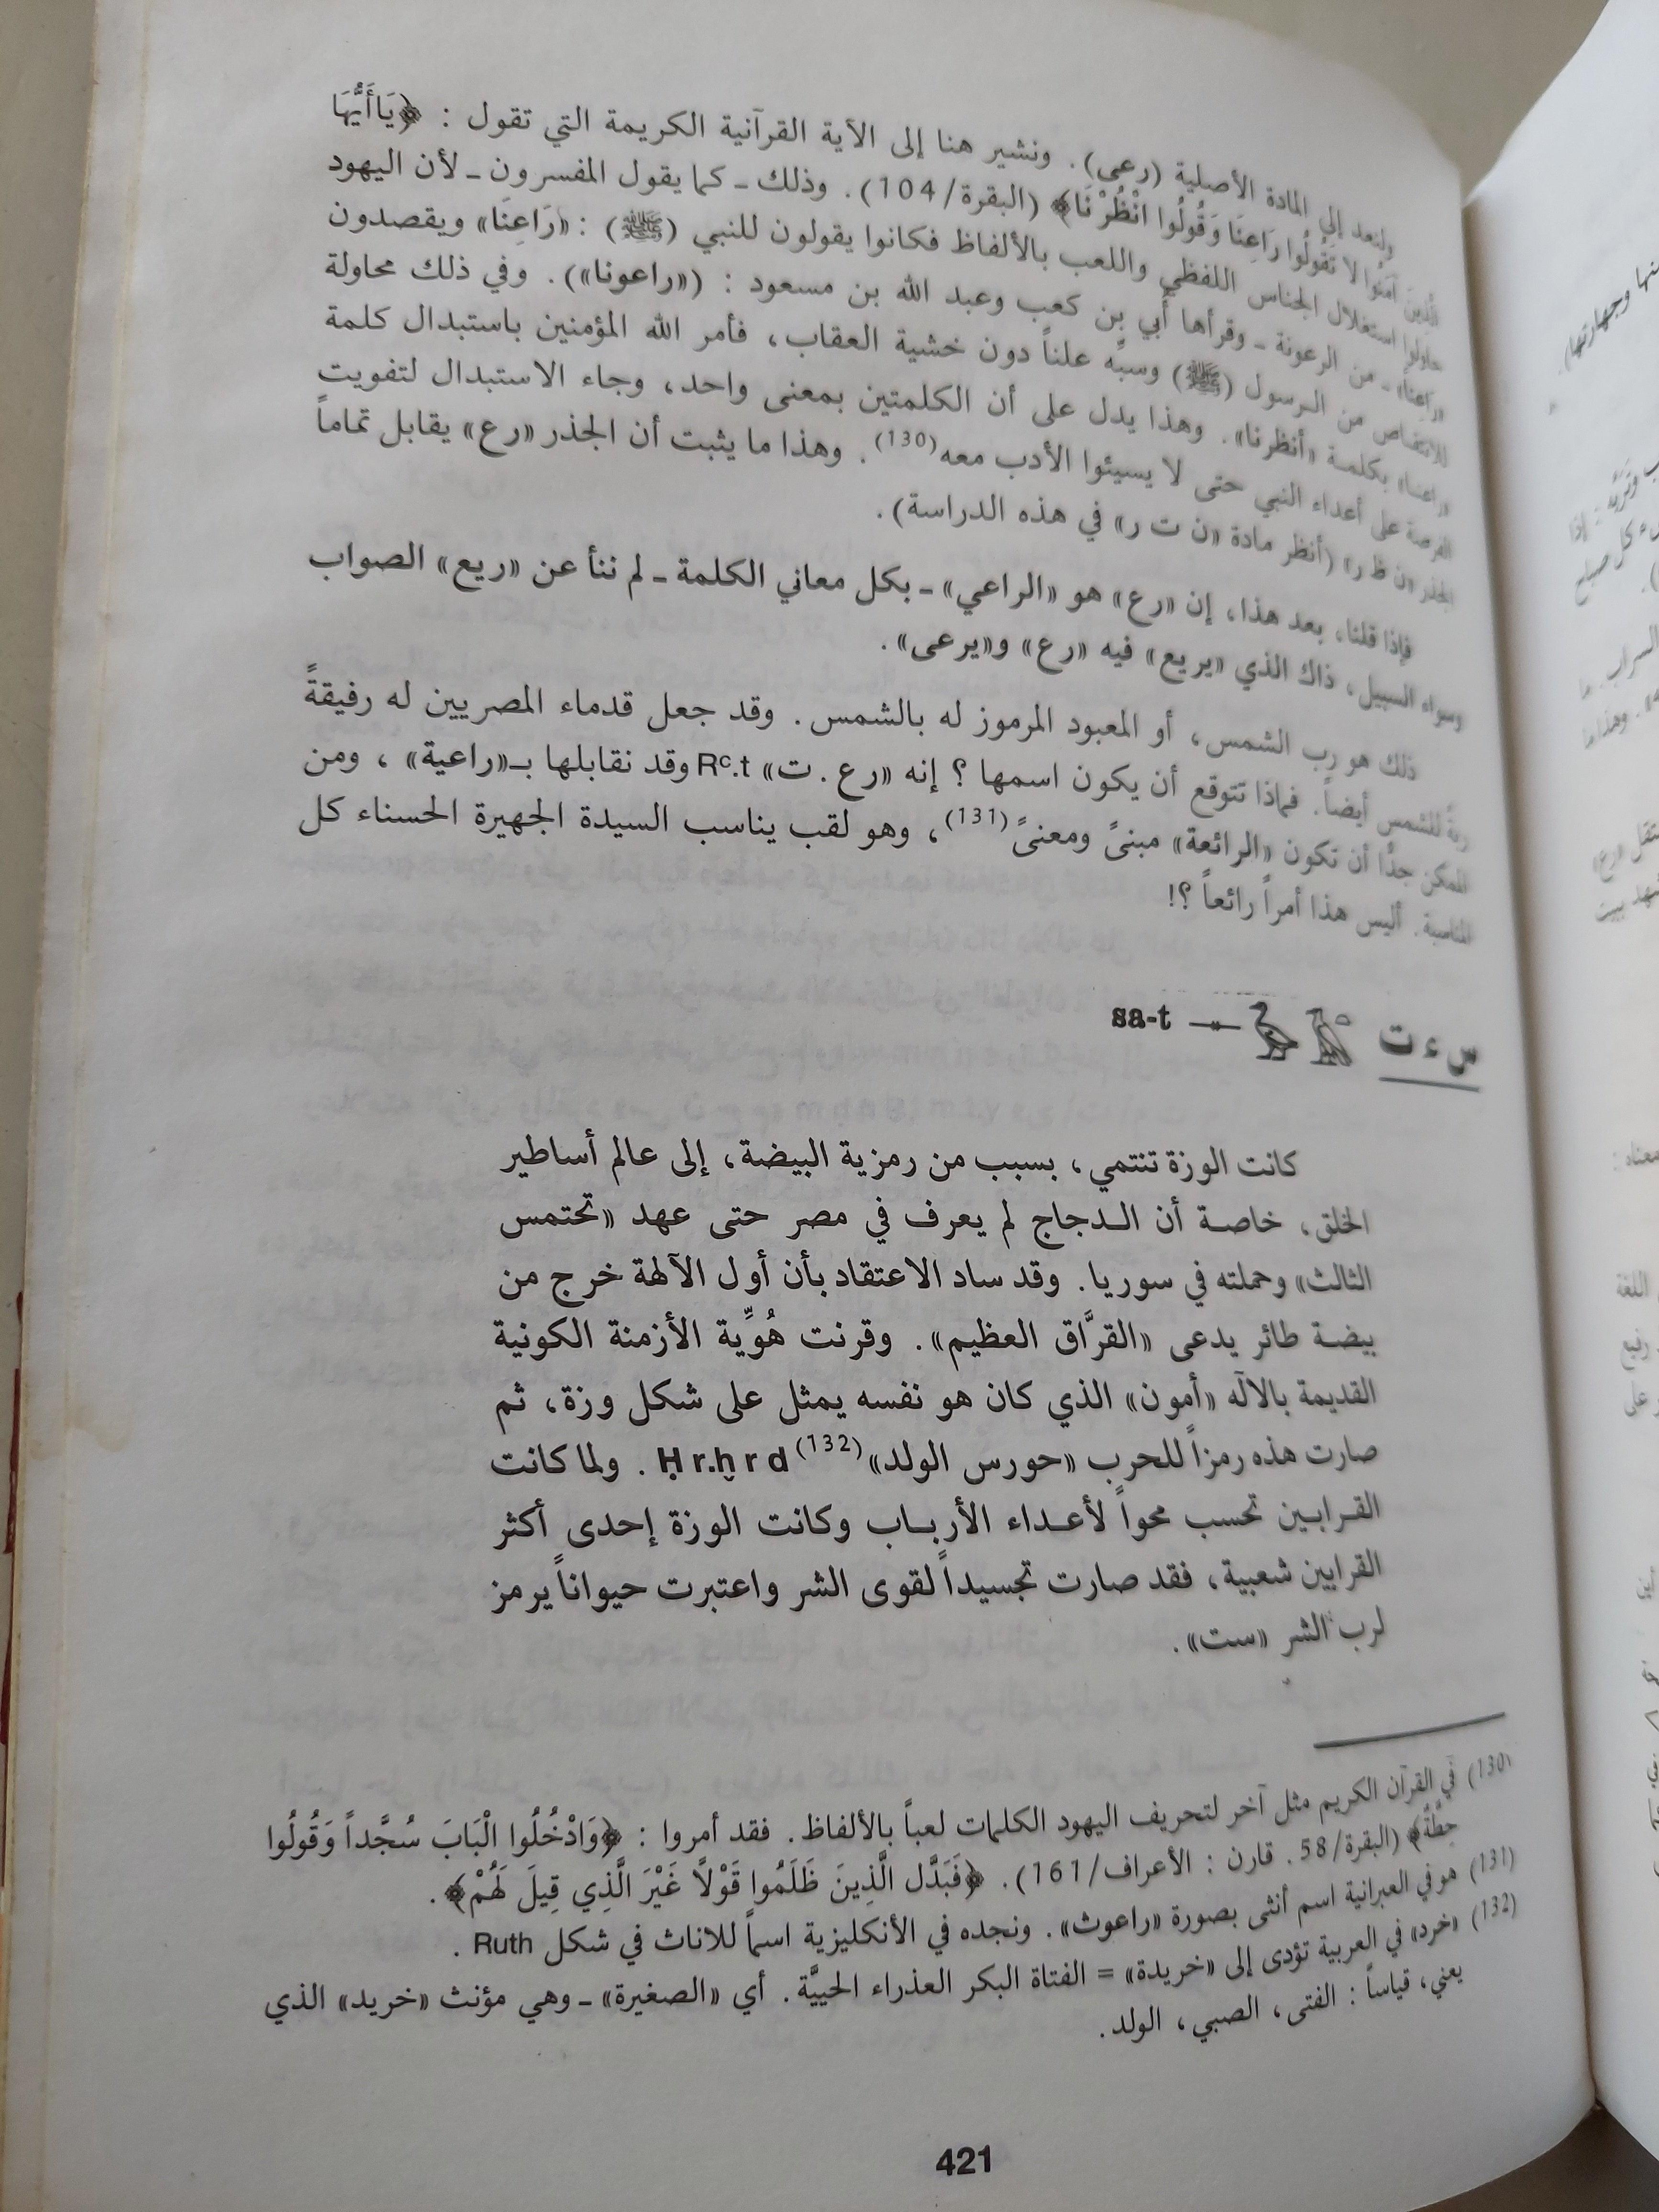 ولنعد إلى المادة الأصلية (رعى). ونشير هنا إلى الآية القرآنية الكريمة التي تقول : ﴿يَاأَيُّهَا
الَّذِينَ آمَنُوا لا تَقُولُوا رَاعِنَا وَقُولُوا انْظُرْنَا﴾ (البقرة/104). وذلك ـ كما يقول المفسرون ـ لأن اليهود
حاولوا استغلال الجناس اللفظي واللعب بالألفاظ فكانوا يقولون للنبي (ﷺ) : «رَاعِنَا» ويقصدون
«راعنا» ـ من الرعونة ـ وقرأها أُبي بن كعب وعبد الله بن مسعود : («راعونا»). وفي ذلك محاولة
للانتقاص من الرسول (ﷺ) وسبّه علناً دون خشية العقاب، فأمر الله المؤمنين باستبدال كلمة
«راعنا» بكلمة «أنظرنا». وهذا يدل على أن الكلمتين بمعنى واحد، وجاء الاستبدال لتفويت
الفرصة على أعداء النبي حتى لا يسيئوا الأدب معه(130). وهذا ما يثبت أن الجذر «رع» يقابل تماماً
الجذر «ن ظ ر» (أنظر مادة «ن ت ر» في هذه الدراسة).
فإذا قلنا، بعد هذا، إن «رع» هو «الراعي» ـ بكل معاني الكلمة ـ لم ننأ عن «ريع» الصواب
وسواء السبيل، ذاك الذي «يريع» فيه «رع» و«يرعى».
ذلك هو رب الشمس، أو المعبود المرموز له بالشمس. وقد جعل قدماء المصريين له رفيقةً
ربة للشمس أيضاً. فماذا تتوقع أن يكون اسمها ؟ إنه «رع . ت» Rᶜ.t وقد نقابلها بـ«راعية» ، ومن
الممكن جدًّا أن تكون «الرائعة» مبنىً ومعنىً(131)، وهو لقب يناسب السيدة الجهيرة الحسناء كل
المناسبة. أليس هذا أمراً رائعاً ؟!
س ء ت sa-t
كانت الوزة تنتمي، بسبب من رمزية البيضة، إلى عالم أساطير
الخلق، خاصة أن الدجاج لم يعرف في مصر حتى عهد «تحتمس
الثالث» وحملته في سوريا. وقد ساد الاعتقاد بأن أول الآلهة خرج من
بيضة طائر يدعى «القرَّاق العظيم». وقرنت هُوِّية الأزمنة الكونية
القديمة بالآله «أمون» الذي كان هو نفسه يمثل على شكل وزة، ثم
صارت هذه رمزاً للحرب «حورس الولد»(132) Ḥr.ḫrd . ولما كانت
القرابين تحسب محواً لأعداء الأرباب وكانت الوزة إحدى أكثر
القرابين شعبية، فقد صارت تجسيداً لقوى الشر واعتبرت حيواناً يرمز
لرب الشر «ست».
(130) في القرآن الكريم مثل آخر لتحريف اليهود الكلمات لعباً بالألفاظ. فقد أمروا : ﴿وَادْخُلُوا الْبَابَ سُجَّداً وَقُولُوا
حِطَّةٌ﴾ (البقرة/58. قارن : الأعراف/161). ﴿فَبَدَّل الَّذِينَ ظَلَمُوا قَوْلاً غَيْرَ الَّذِي قِيلَ لَهُمْ﴾.
(131) هو في العبرانية اسم أنثى بصورة «راعوث». ونجده في الأنكليزية اسماً للاناث في شكل Ruth .
(132) «خرد» في العربية تؤدى إلى «خريدة» = الفتاة البكر العذراء الحييَّة. أي «الصغيرة» ـ وهي مؤنث «خريد» الذي
يعني، قياساً : الفتى، الصبي، الولد.
421